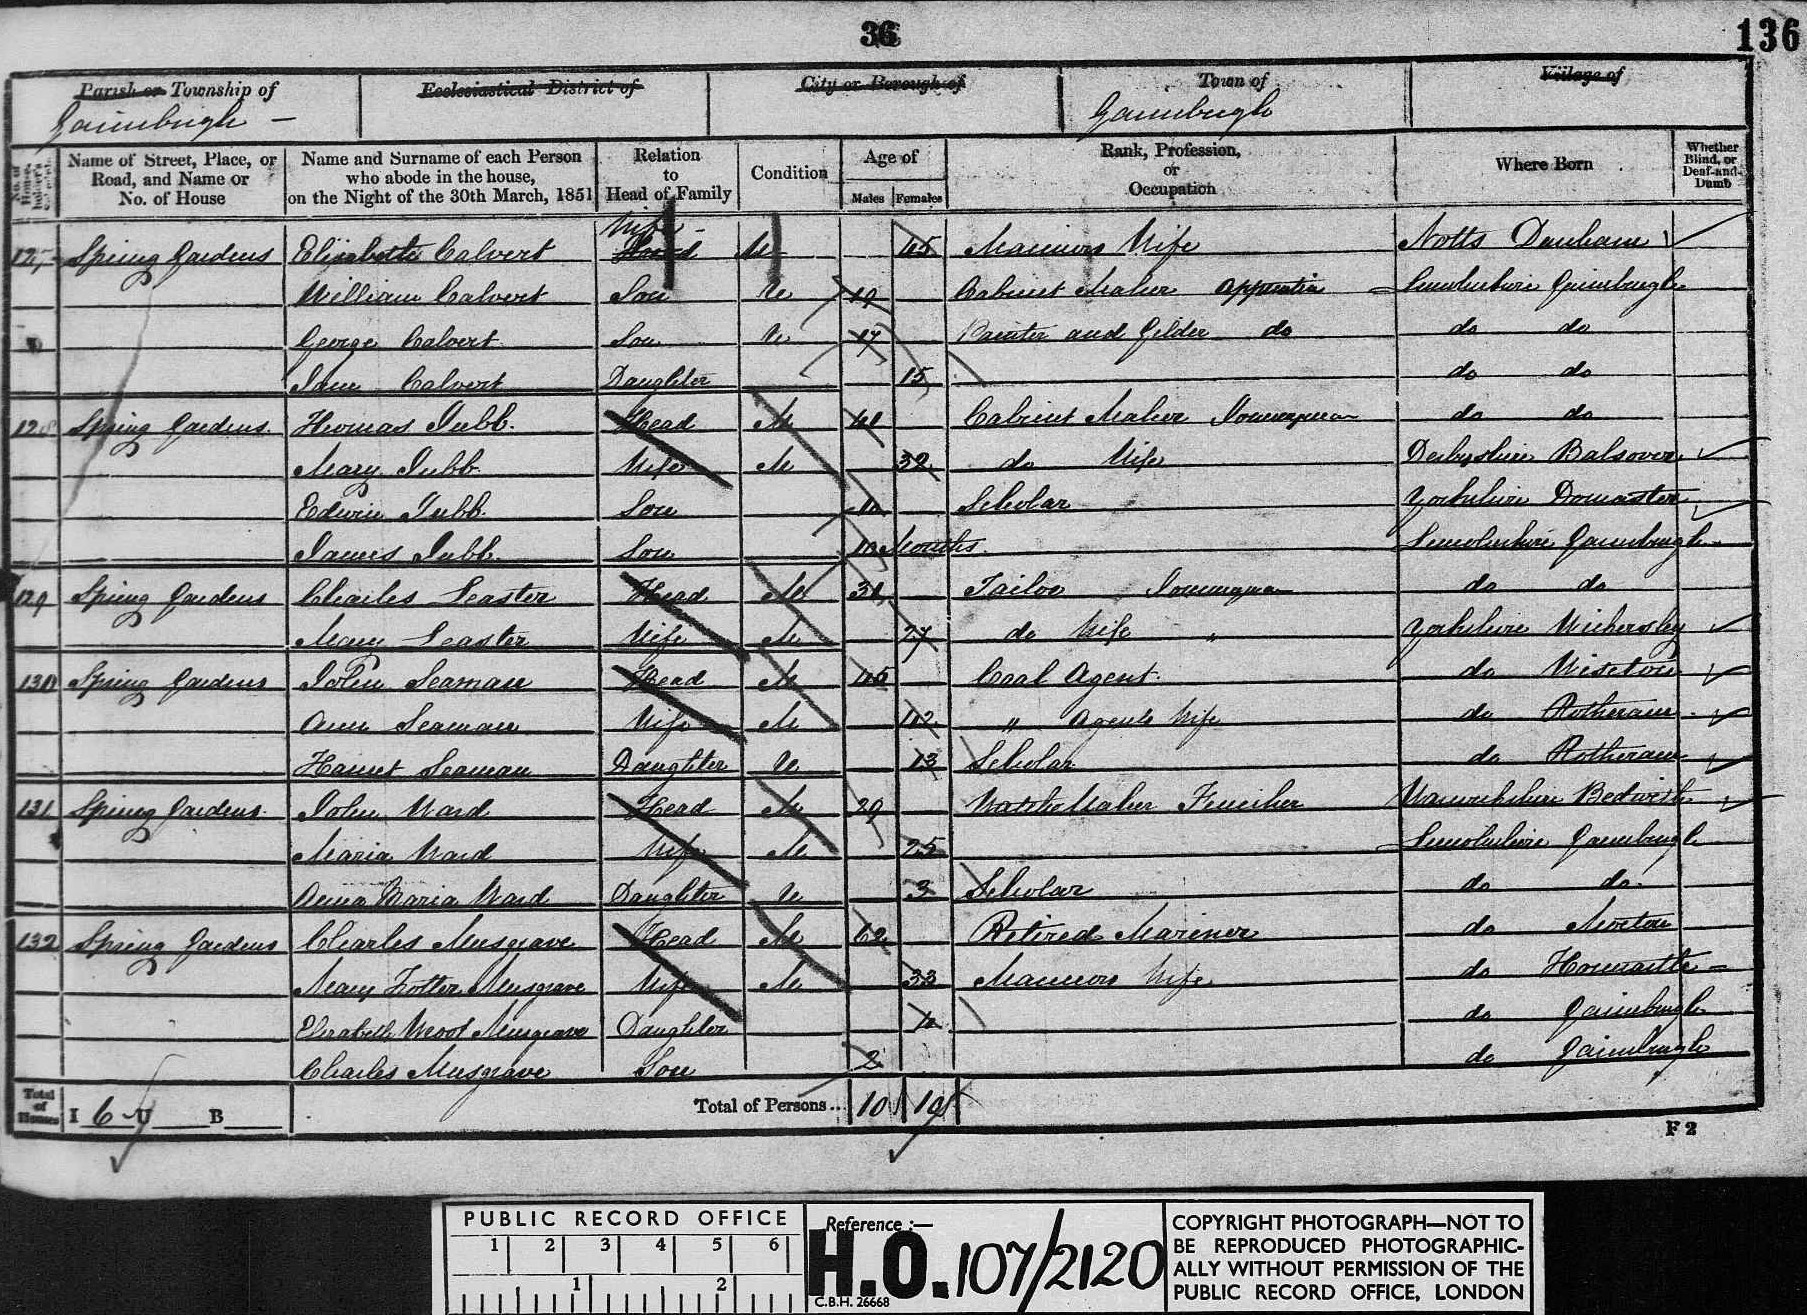 36
136
Parish or Township of Ecclesiastical District of City or Borough of Town of Village of
Gainsbrugh - Gainsbrugh
Name of Street, Place, or Road, and Name or No. of House
Name and Surname of each Person who abode in the house, on the Night of the 30th March, 1851
Relation to Head of Family
Condition
Age of Males Females
Rank, Profession, or Occupation
Where Born
Whether Blind, or Deaf-and-Dumb
Wife
127 Spring Gardens Elizabeth Calvert Head M 45 Mariners Wife Notts Dunham
William Calvert Son U 19 Cabinet Maker Apprentice Lincolnshire Gainsbrugh
George Calvert Son U 17 Painter and Gilder do do do
Jane Calvert Daughter 15 do do
128 Spring Gardens Thomas Jubb Head M 41 Cabinet Maker Journeyman do do
Mary Jubb Wife M 32 do Wife Derbyshire Balsover
Edwin Jubb Son Scholar Yorkshire Doncaster
James Jubb Son 10 Months Lincolnshire Gainsbrugh
129 Spring Gardens Charles Leaster Head M 31 Tailor Journeyman do do
Mary Leaster Wife M 27 do Wife " Yorkshire Wickersley
130 Spring Gardens John Seaman Head M 45 Coal Agent do Wiseton
Ann Seaman Wife M 42 " Agents Wife do Rotheram
Harriet Seaman Daughter U 13 Scholar do Rotheram
131 Spring Gardens John Ward Head M 29 Watch Maker Finisher Warwickshire
Maria Ward Wife M 25 Lincolnshire Gainsbrugh
Anna Maria Ward Daughter U 3 Scholar do do
132 Spring Gardens Charles Musgrave Head M 62 Retired Mariner do Morton
Mary Musgrave Wife M 33 Mariners Wife do Horncastle
Elizabeth Musgrave Daughter do Gainsbrugh
Charles Musgrave Son 2 do Gainsbrugh
Total of Houses I 6 U B Total of Persons... 10 10
F 2
PUBLIC RECORD OFFICE
1 2 3 4 5 6
1 2
Reference :—
H.O. 107/2120
C.B.H. 26668
COPYRIGHT PHOTOGRAPH—NOT TO
BE REPRODUCED PHOTOGRAPHIC-
ALLY WITHOUT PERMISSION OF THE
PUBLIC RECORD OFFICE, LONDON